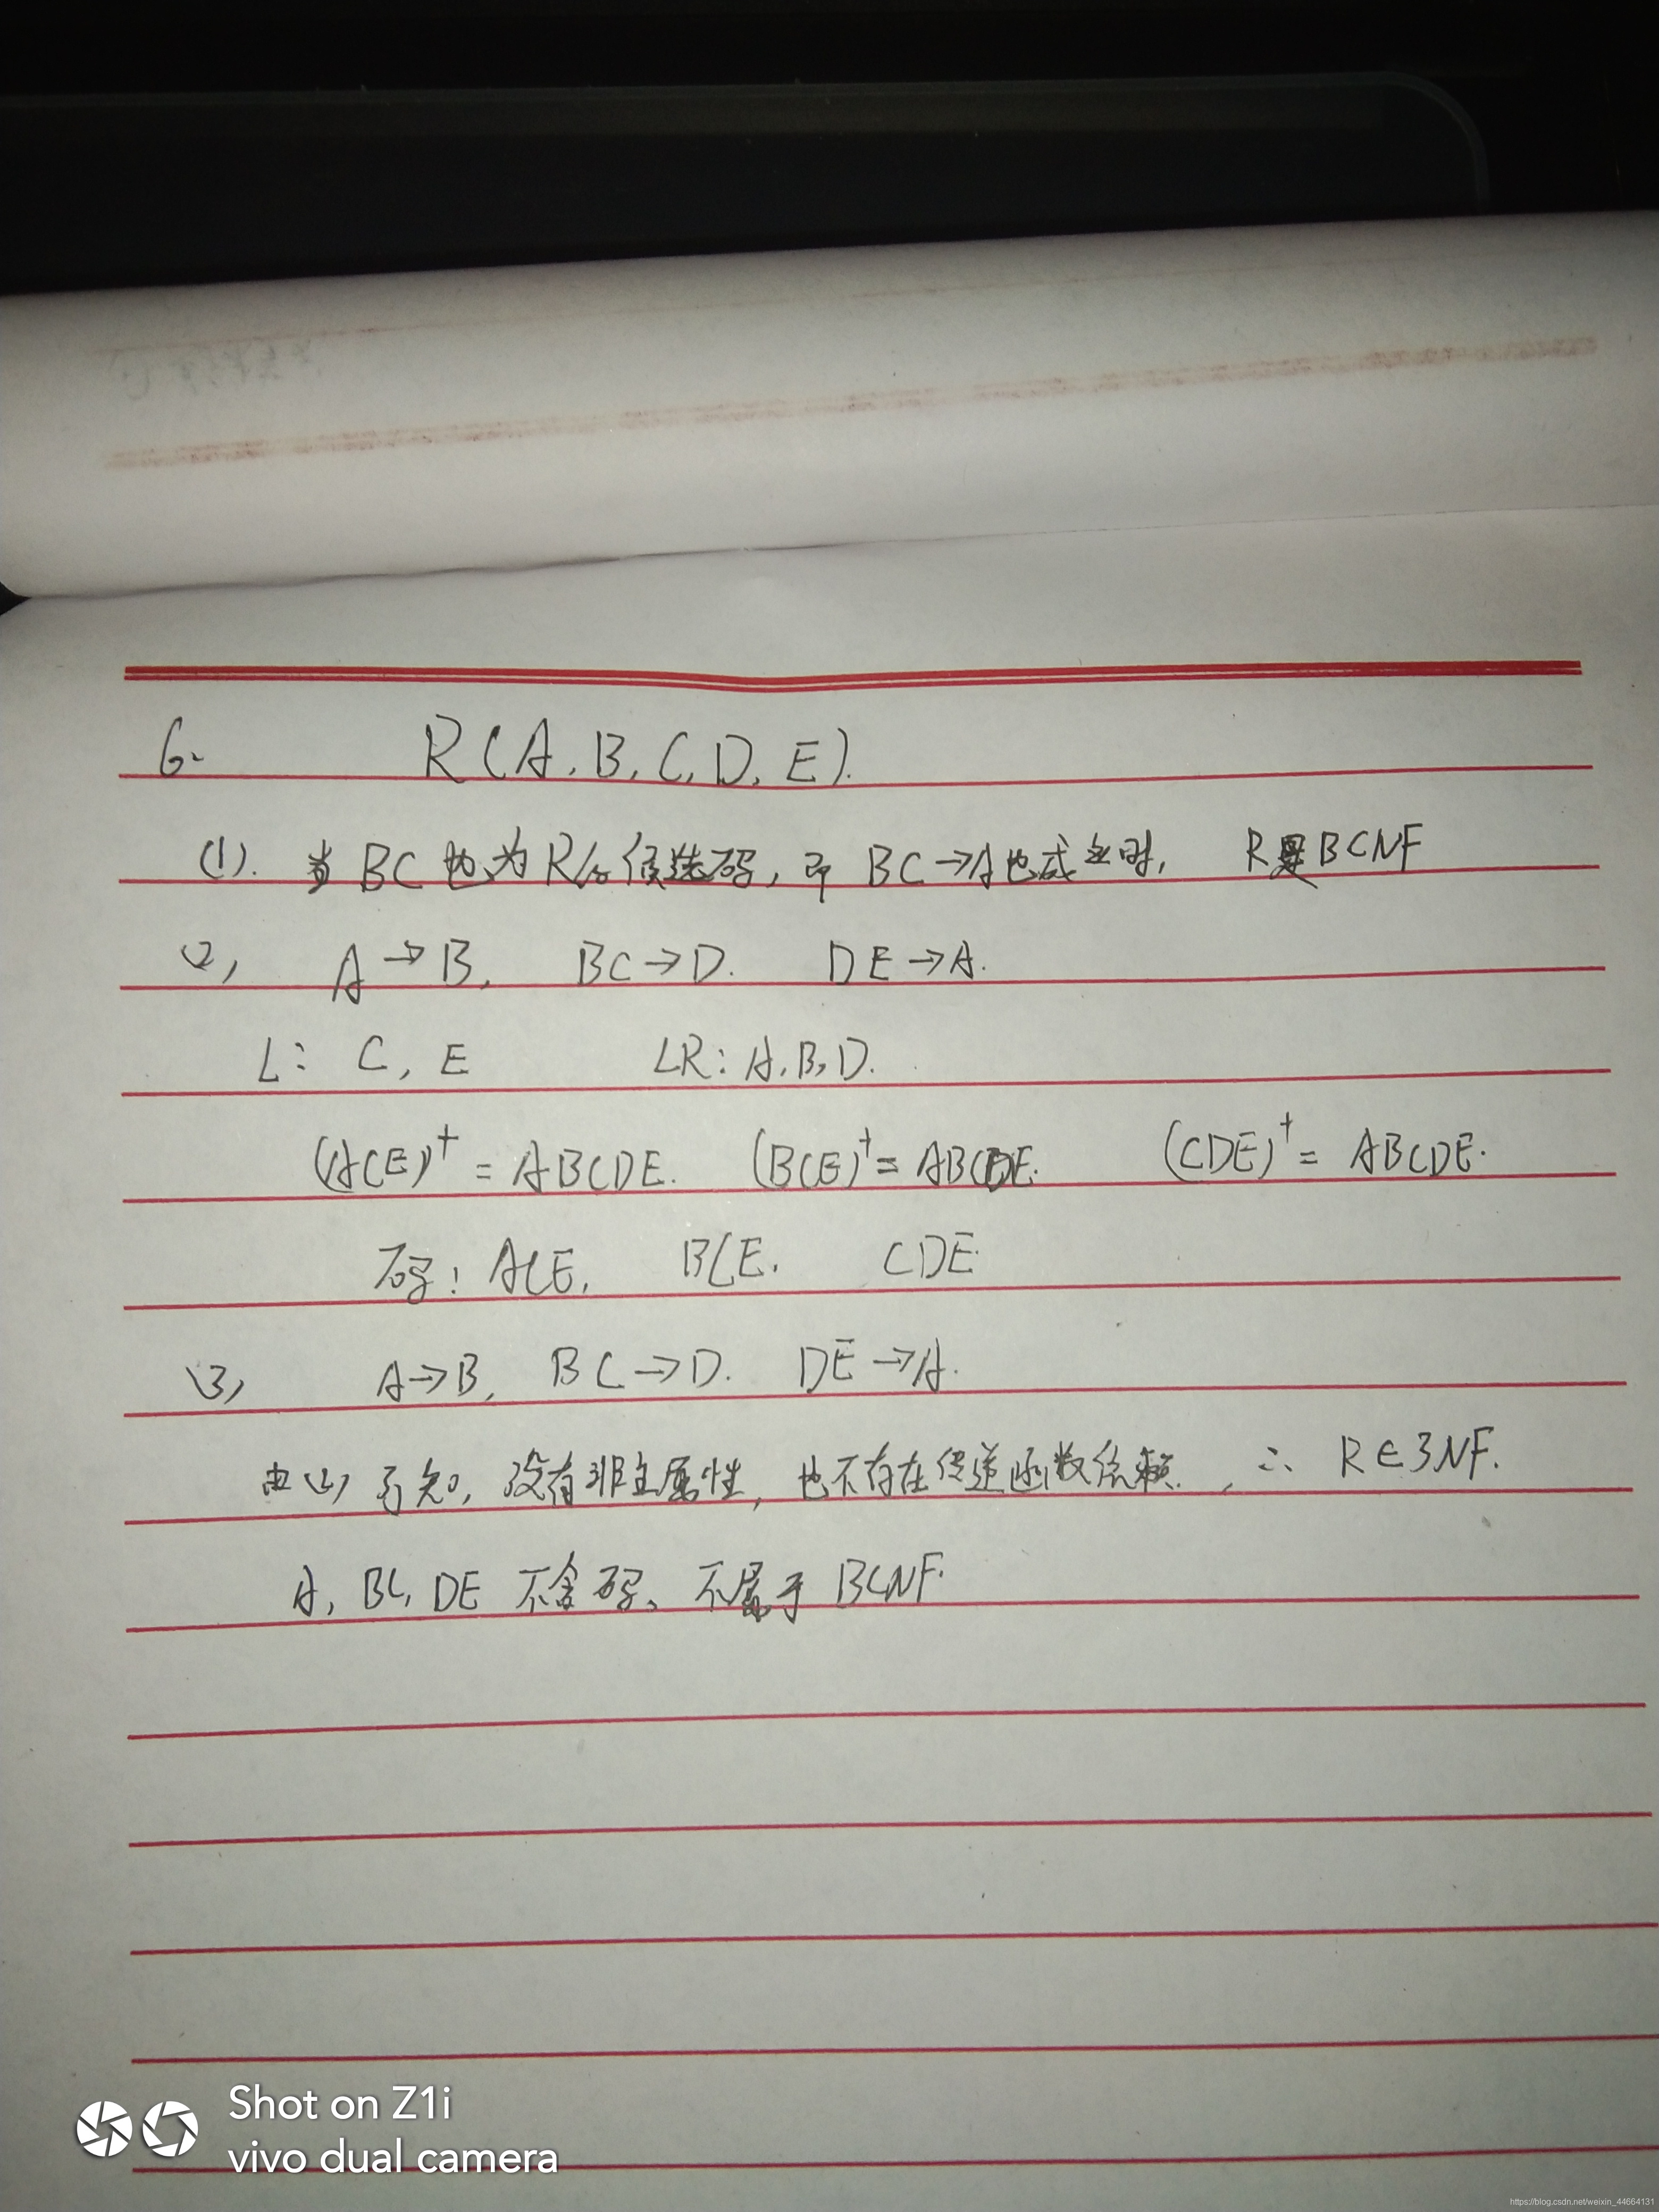 6. R(A, B, C, D, E).
(1). 当BC也为R的候选码, 即 BC→A也成立时, R是BCNF
(2), A→B, BC→D. DE→A.
L: C, E LR: A, B, D.
(ACE)⁺ = ABCDE. (BCE)⁺ = ABCDE. (CDE)⁺ = ABCDE.
码: ACE, BCE, CDE.
(3), A→B, BC→D. DE→A.
由(2)可知, 没有非主属性, 也不存在传递函数依赖, ∴ R∈3NF.
A, BC, DE 不含码、不属于 BCNF.
Shot on Z1i
vivo dual camera
https://blog.csdn.net/weixin_44664131